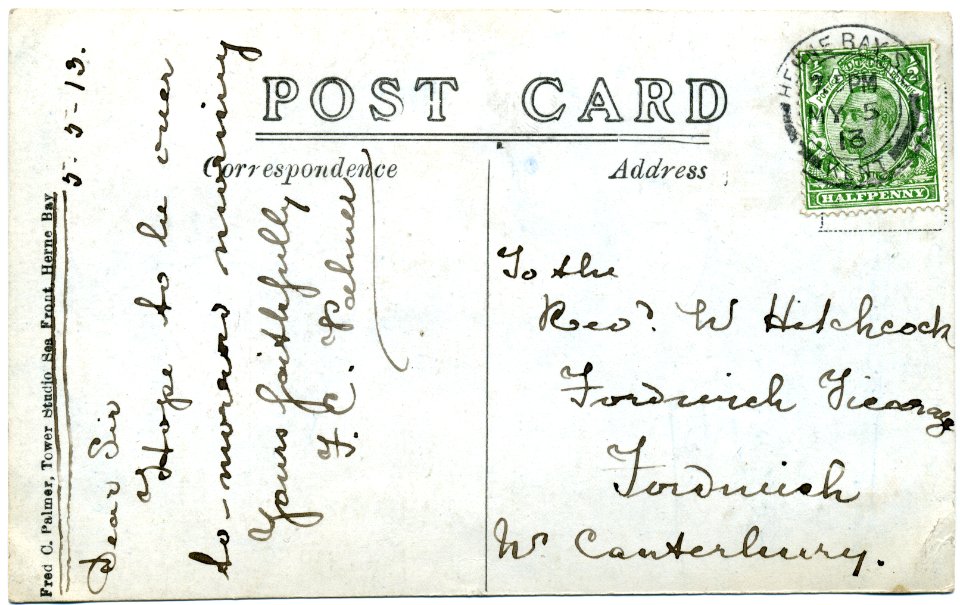 POST CARD
Correspondence
Address
Fred C. Palmer, Tower Studio Sea Front, Herne Bay
5-5-13.
Dear Sir
Hope to be over
to-morrow morning
Yours faithfully
F. C. Palmer
To the
Revd. W Hitchcock
Fordwich Vicarage
Fordwich
Nr Canterbury.
HERNE BAY
PM
MY 5
13
KENT
HALFPENNY